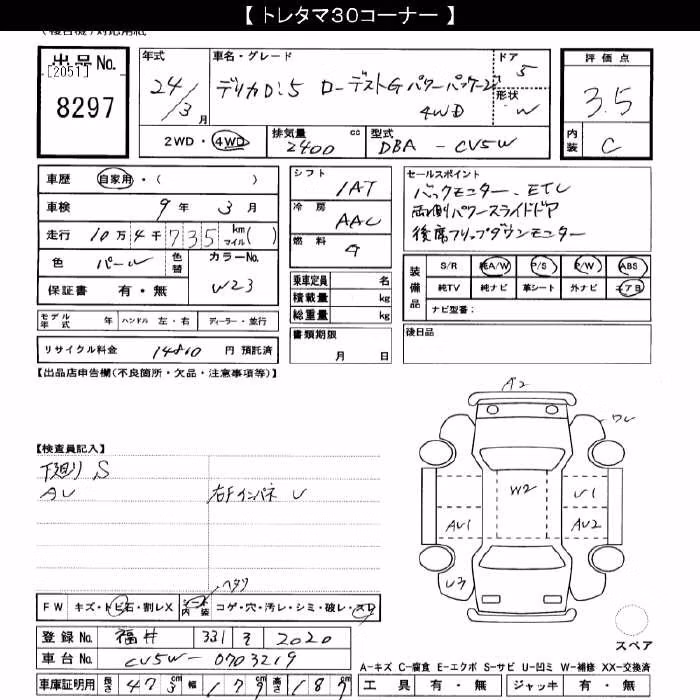 【 トレタマ30コーナー 】
出品No.
[2051]
8297
年式
24/3月
車名・グレード
デリカD:5 ローデストGパワーパッケージ
4WD
ドア
5
形状
W
評価点
3.5
内装
C
2WD・4WD
排気量 2400 cc
型式 DBA - CV5W
車歴 自家用・( )
車検 9年 3月
走行 10万4千735 km マイル( )
色 パール 色替 カラーNo. W23
保証書 有・無
モデル年式 年 ハンドル 左・右 ディーラー・並行
リサイクル料金 14810 円 預託済
シフト
IAT
冷房
AAC
燃料
G
乗車定員 名
積載量 kg
総重量 kg
書類期限
月 日
セールスポイント
バックモニター、ETC
両側パワースライドドア
後席フリップダウンモニター
装備品
S/R 純A/W P/S P/W ABS
純TV 純ナビ 革シート 外ナビ エアB
ナビ型番:
後日品
【出品店申告欄(不良箇所・欠品・注意事項等)】
【検査員記入】
下廻り S
AU 右Fインパネ U
A2
W2
U1
AU1
AU2
U3
ヘタリ
FW キズ・トビ石・割レX シート内装 コゲ・穴・汚レ・シミ・破レ・スレ
登録No. 福井 331 2020
車台No. CV5W-0703219
車庫証明用 長さ 473cm 幅 179cm 高さ 187cm
スペア
A-キズ C-腐食 E-エクボ S-サビ U-凹ミ W-補修 XX-交換済
工具 有・無 ジャッキ 有・無